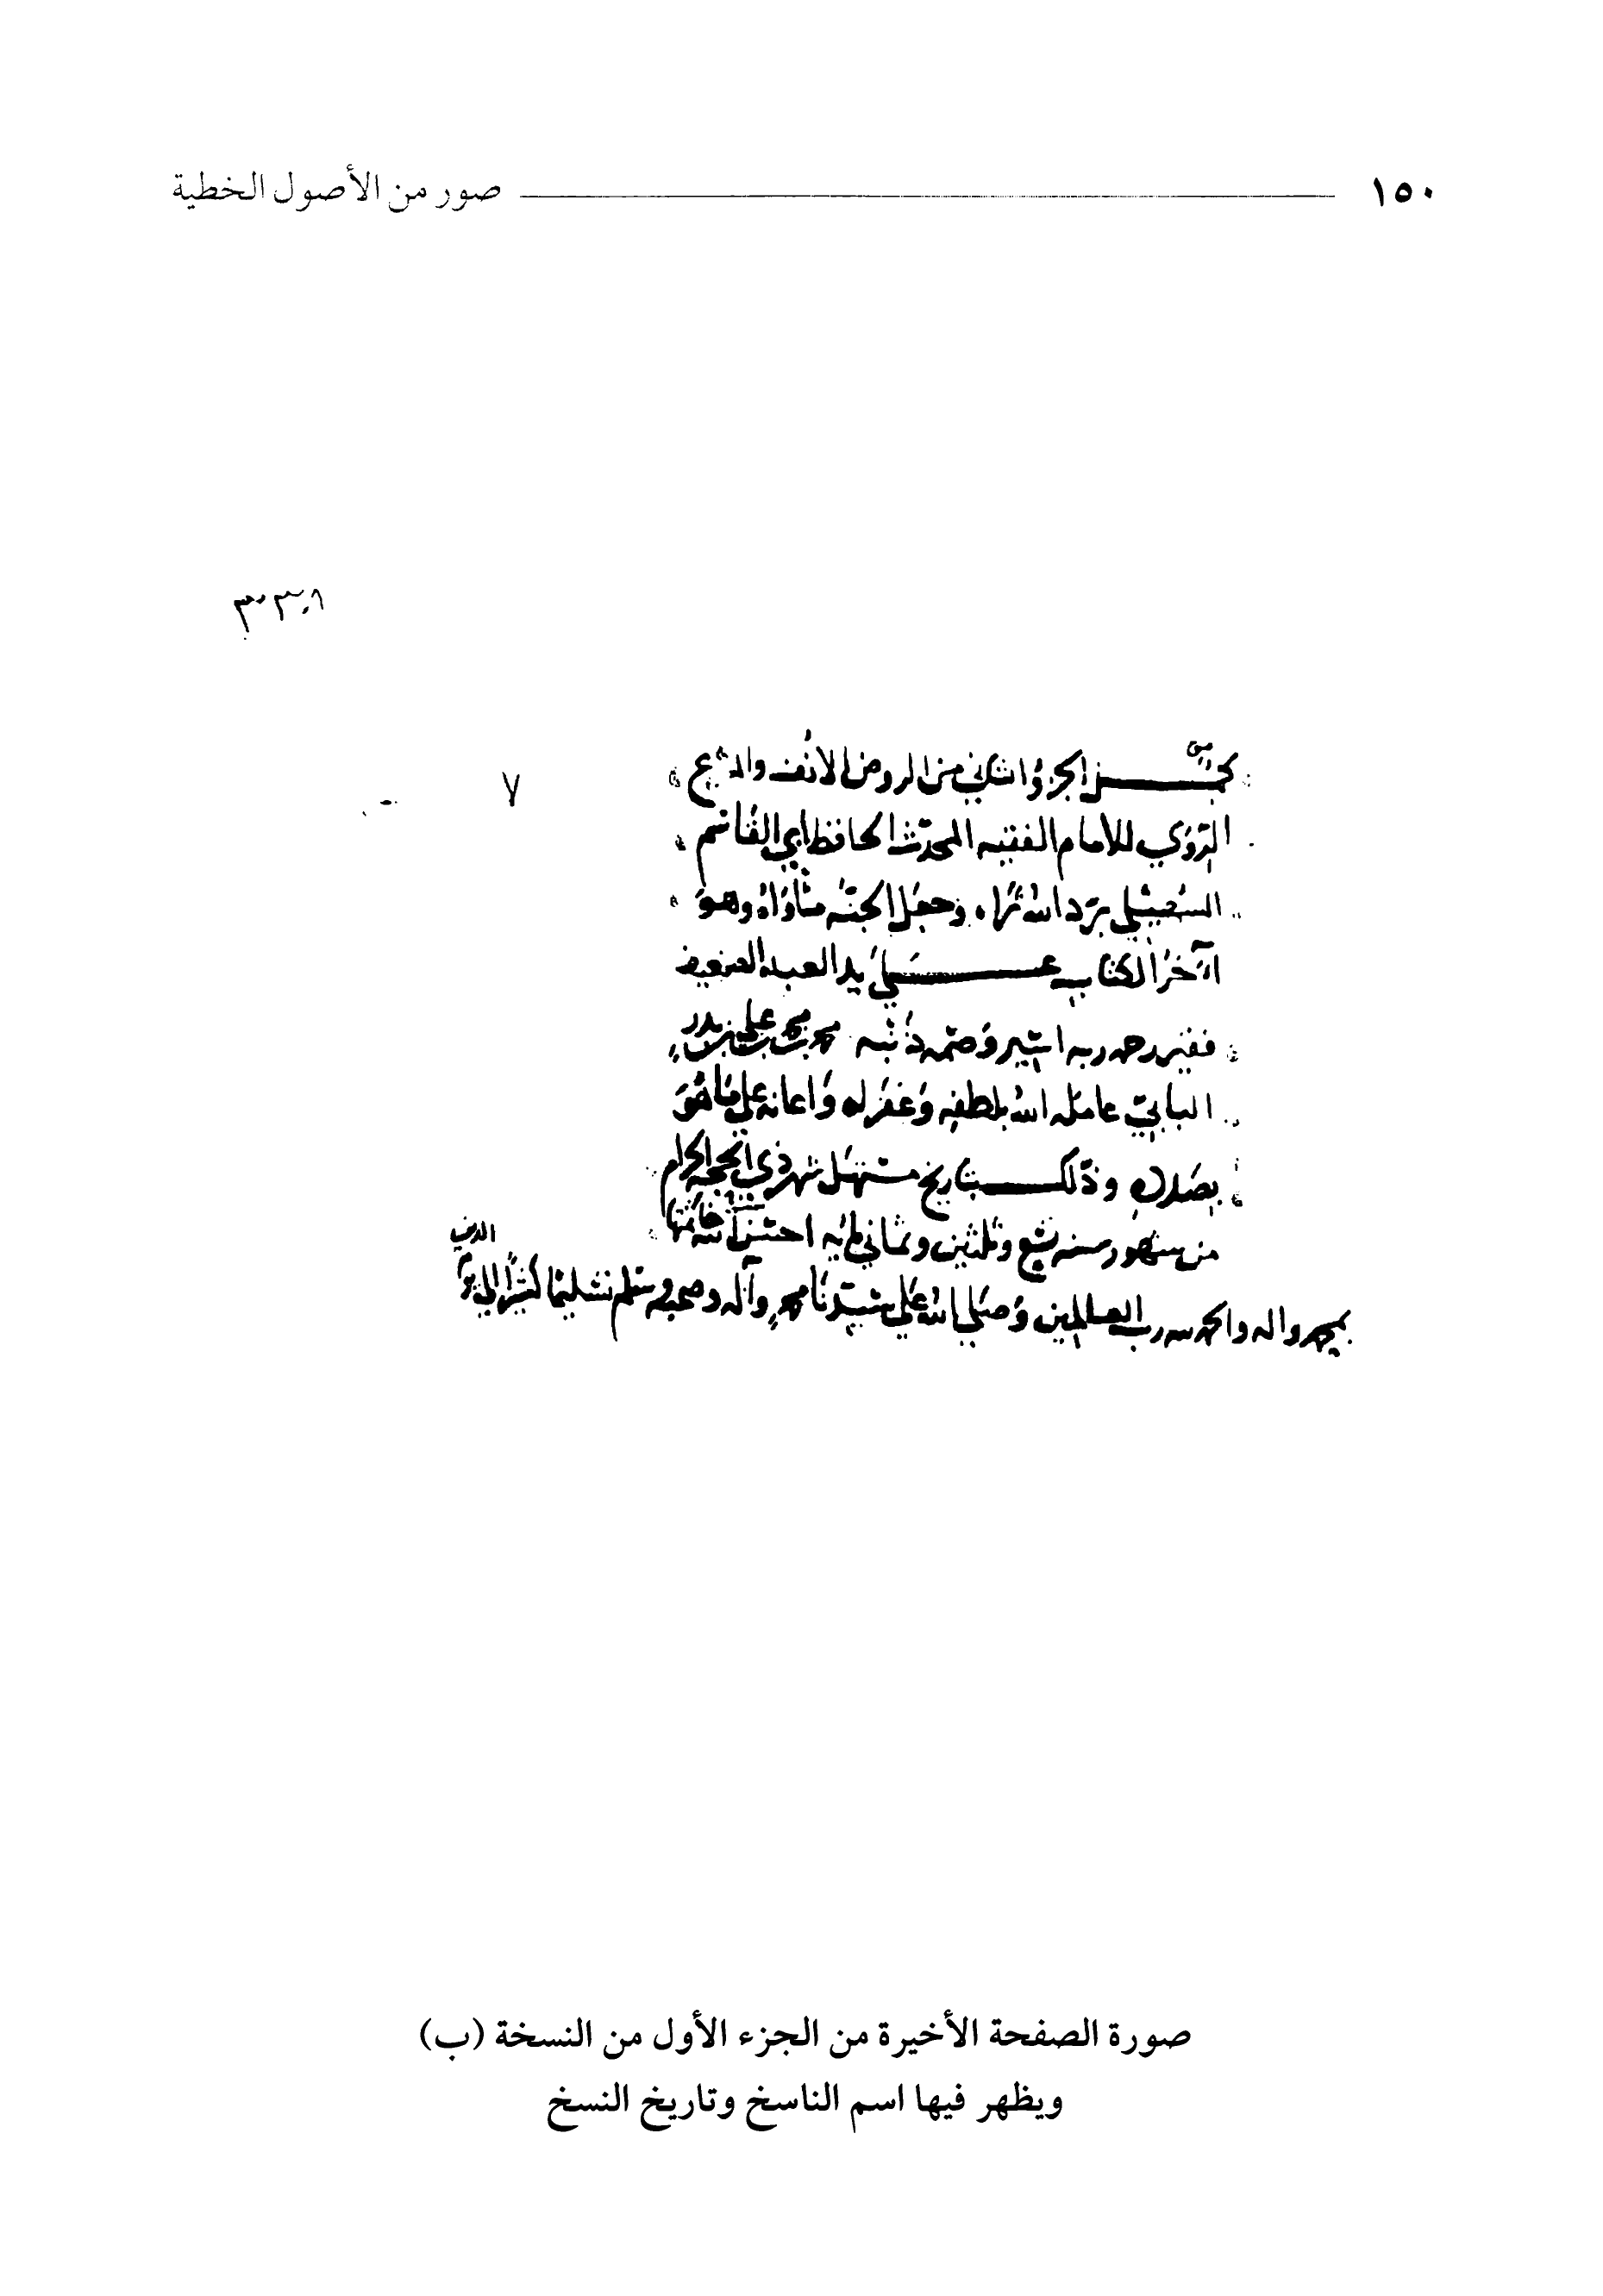 ١٥٠ صور من الأصول الخطية
٧
الجزؤ الثاني من الروض الانف والمـ
الروي للامام الفقيه المحدث الحافظ ابي القاسم
السهيلي برد الله ثراه وجعل الجنة مثاواه وهو
اۤخر الكتاب على يد العبد الضعيف
فقير رحمه ربه اسير وصمة ذنبه محمد بن محمد بن علي بن بدر
البابي عامله الله بلطفه وغفر له واعانه على ما هو
بصدده وذلك بتاريخ مستهل شهر ذي الحجه الحرام
من شهور سنه تسع وثلثين وثماني مايه احسن الله خاتمتها
بمحمد واله والحمد لله رب العالمين وصلى الله على سيدنا محمد وآله وصحبه وسلم تسليما كثيرا الى يوم الدين
صورة الصفحة الأخيرة من الجزء الأول من النسخة (ب)
ويظهر فيها اسم الناسخ وتاريخ النسخ